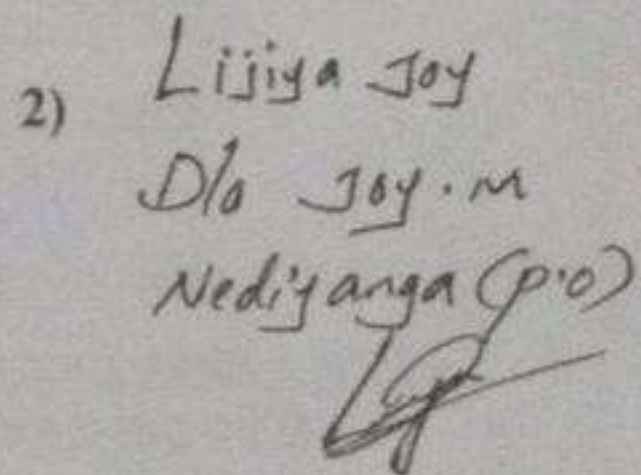 2) Lijiya Joy
D/o Joy.M
Nediyanga (P.O)